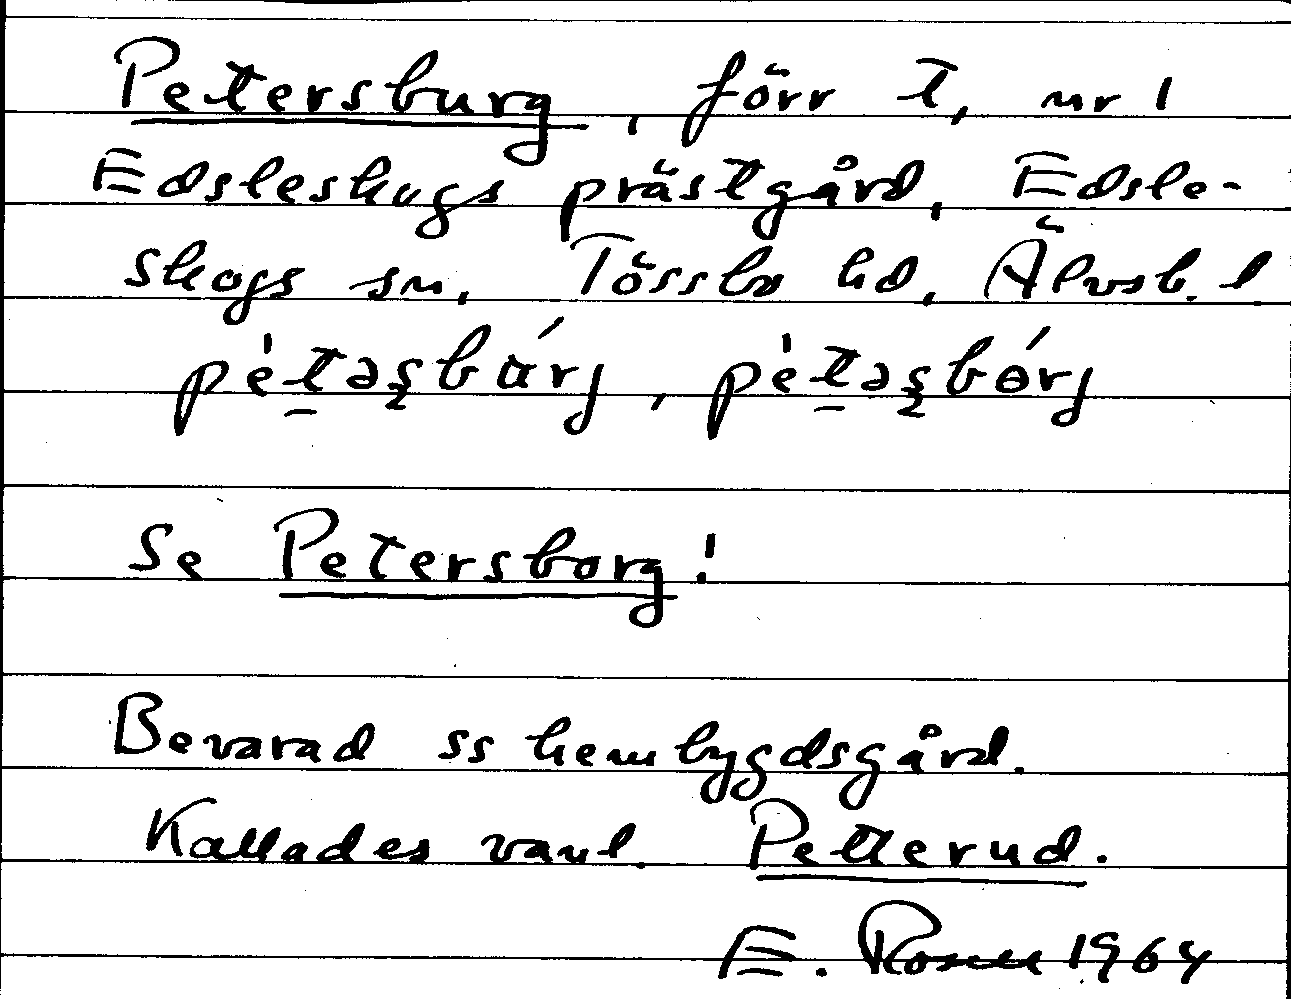 Petersburg, förr t, nr 1
Edsleskogs prästgård, Edsle-
skogs sn, Tössbo hd, Älvsb. l.
pè́təʂbárj, pè́təʂbórj
Se Petersborg!
Bevarad ss hembygdsgård.
Kallades vanl. Petterud.
E. Rosell 1964